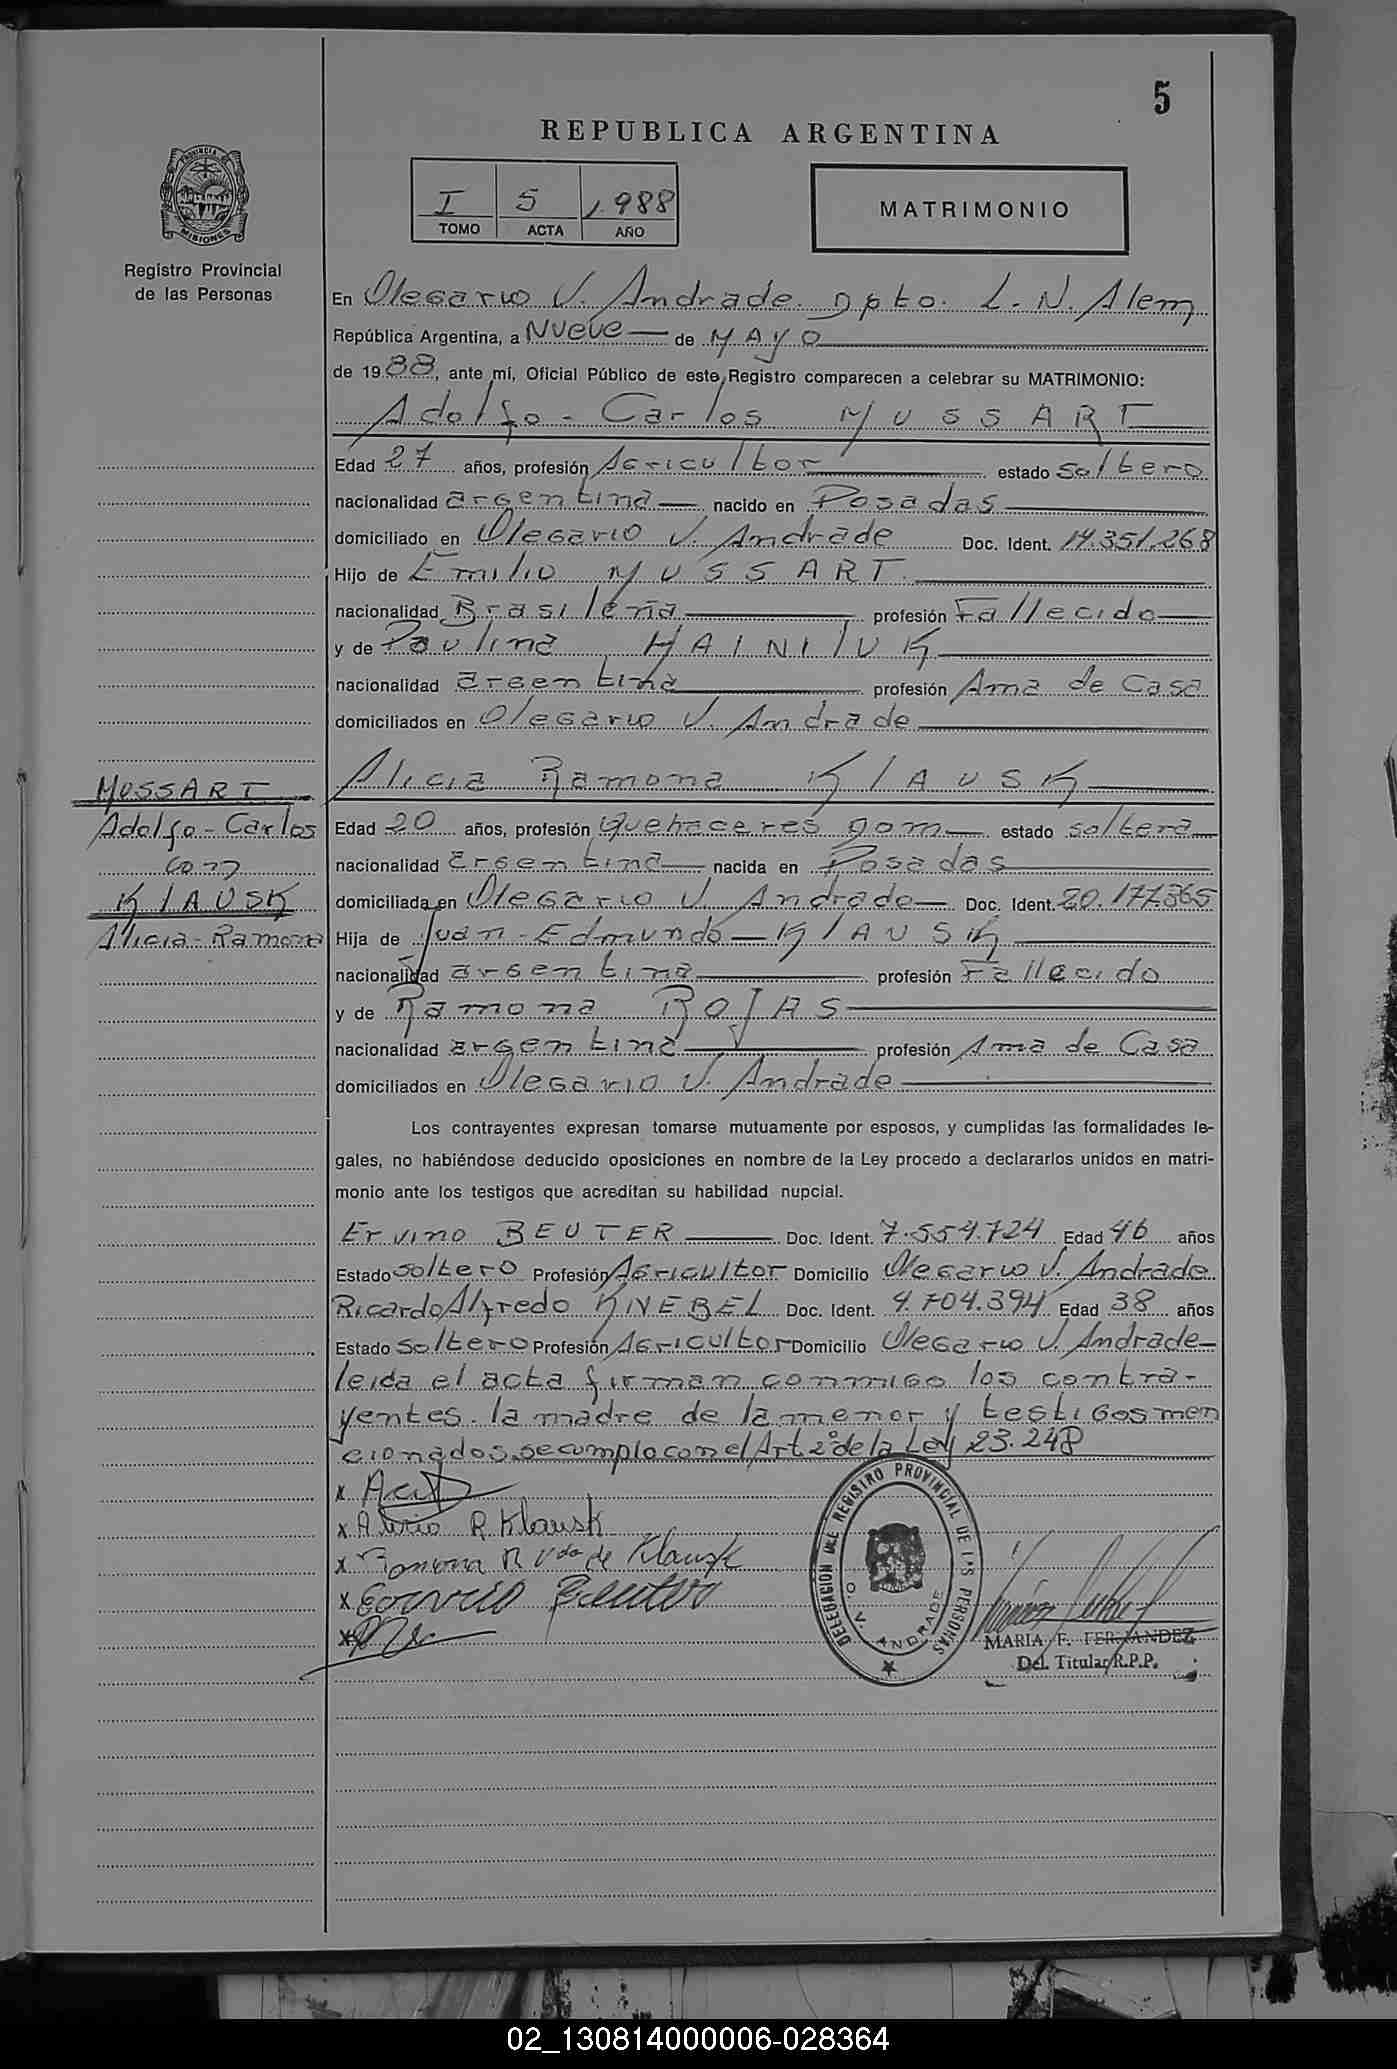 5
REPUBLICA ARGENTINA
I 5 1.988
TOMO ACTA AÑO
MATRIMONIO
PROVINCIA DE
MISIONES
Registro Provincial
de las Personas
En Olegario V. Andrade. Dpto. L. N. Alem
República Argentina, a Nueve de Mayo
de 1988, ante mí, Oficial Público de este Registro comparecen a celebrar su MATRIMONIO:
Adolfo - Carlos MUSSART
Edad 27 años, profesión Agricultor estado soltero
nacionalidad argentina nacido en Posadas
domiciliado en Olegario V. Andrade Doc. Ident. 14.351.268
Hijo de Emilio MUSSART
nacionalidad Brasileña profesión Fallecido
y de Paulina HAINILUK
nacionalidad argentina profesión Ama de Casa
domiciliados en Olegario V. Andrade
Alicia Ramona KLAUSK
Edad 20 años, profesión Quehaceres Dom estado soltera
nacionalidad argentina nacida en Posadas
domiciliada en Olegario V. Andrade Doc. Ident. 20.177.365
Hija de Juan - Edmundo - KLAUSK
nacionalidad argentina profesión Fallecido
y de Ramona ROJAS
nacionalidad argentina profesión Ama de Casa
domiciliados en Olegario V. Andrade
MUSSART
Adolfo - Carlos
con
KLAUSK
Alicia - Ramona
Los contrayentes expresan tomarse mutuamente por esposos, y cumplidas las formalidades le-
gales, no habiéndose deducido oposiciones en nombre de la Ley procedo a declararlos unidos en matri-
monio ante los testigos que acreditan su habilidad nupcial.
Ervino BEUTER Doc. Ident. 7.554.724 Edad 46 años
Estado soltero Profesión Agricultor Domicilio Olegario V. Andrade
Ricardo Alfredo KNEBEL Doc. Ident. 4.704.394 Edad 38 años
Estado soltero Profesión Agricultor Domicilio Olegario V. Andrade
leida el acta firman conmigo los contra-
yentes. la madre de la menor y testigos men
cionados. se cumplo con el Art 2° de la Ley 23.248
x
x Alicia R. Klausk
x Ramona R Vda de Klausk
x Beuter
x
DELEGACION DEL REGISTRO PROVINCIAL DE LAS PERSONAS
O. V. ANDRADE
MARIA F. FERNANDEZ
Del. Titular R.P.P.
02_130814000006-028364